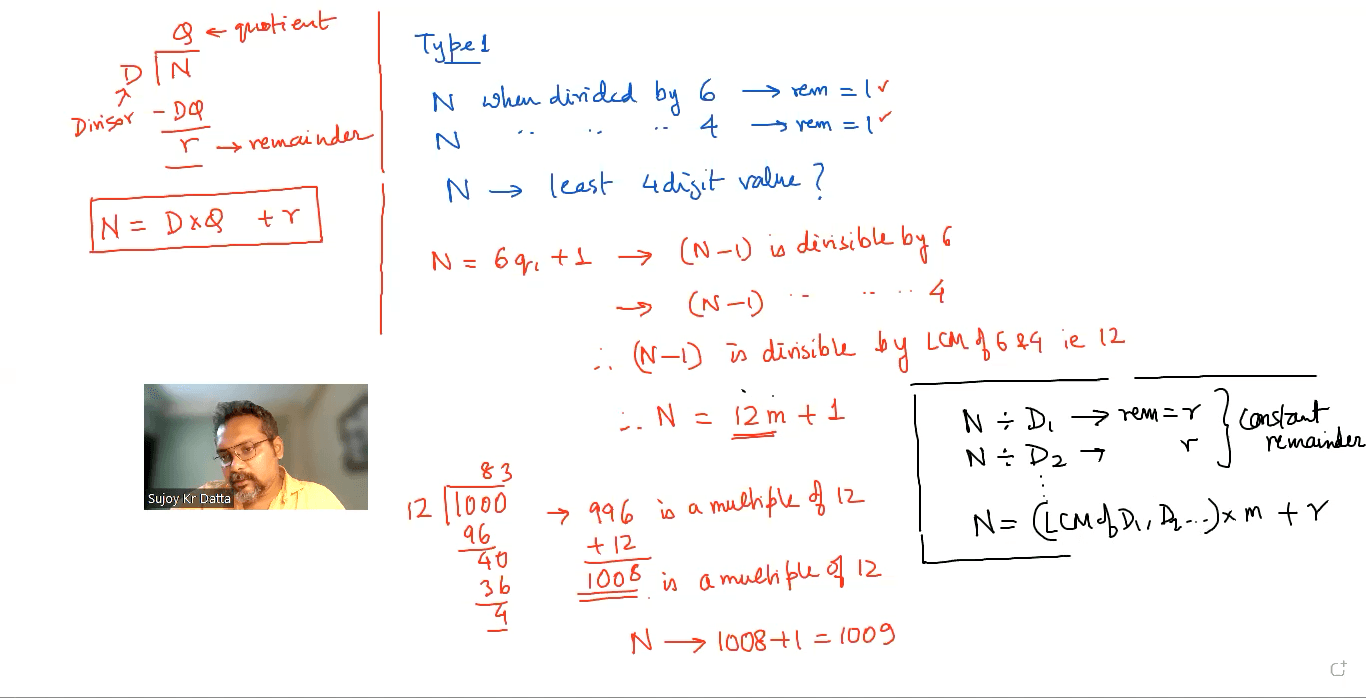 Q ← quotient
D N
Divisor - DQ
r → remainder
N = D×Q + r
Type 1
N when divided by 6 → rem = 1 ✓
N .. .. .. 4 → rem = 1 ✓
N → least 4 digit value?
N = 6q₁ + 1 → (N-1) is divisible by 6
→ (N-1) .. .. .. 4
∴ (N-1) is divisible by LCM of 6 & 4 ie 12
∴ N = 12m + 1
83
12 1000 → 996 is a multiple of 12
96 +12
40 1008 is a multiple of 12
36
4
N → 1008+1 = 1009
N ÷ D₁ → rem = r } constant
N ÷ D₂ → r remainder
⋮
N = (LCM of D₁, D₂ ...) × m + r
Sujoy Kr Datta